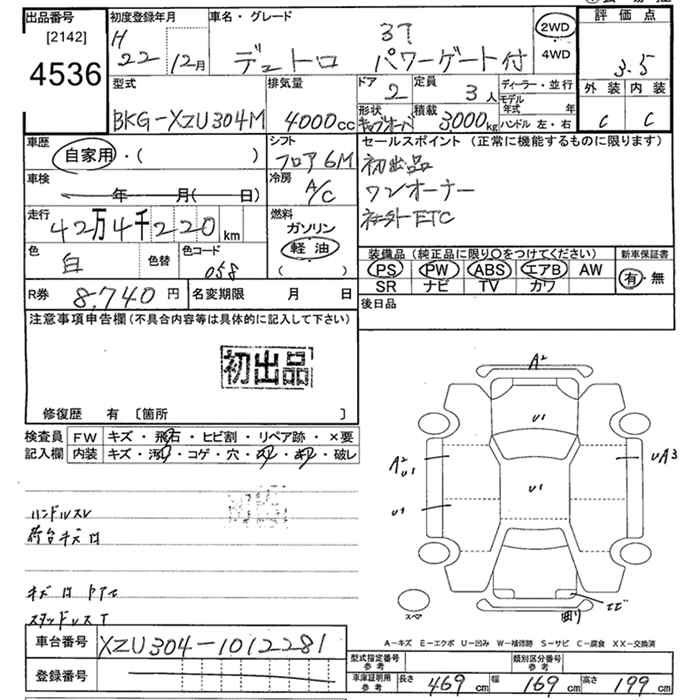 出品番号
[2142]
4536
初度登録年月
H
22 12月
車名・グレード
3T
デュトロ パワーゲート付
2WD
4WD
評価点
3.5
外装 内装
C C
型式
BKG-XZU304M
排気量
4000cc
ドア 2
定員
3人
形状
キャブオーバ
積載
3000kg
ディーラー・並行
モデル年式 年
ハンドル 左・右
車歴
自家用・( )
シフト
フロア6M
車検
年 月( 日)
冷房
A/C
走行
42万4千220km
燃料
ガソリン
軽・油
( )
色
白
色替
色コード
058
R券 8,740円
名変期限 月 日
セールスポイント(正常に機能するものに限ります)
初出品
ワンオーナー
社外ETC
装備品(純正品に限り○をつけてください)
PS PW ABS エアB AW
SR ナビ TV カワ
新車保証書
有・無
後日品
注意事項申告欄(不具合内容等は具体的に記入して下さい)
初出品
修復歴 有〔箇所 〕
検査員
記入欄
FW キズ・飛石・ヒビ割・リペア跡・×要
内装 キズ・汚れ・コゲ・穴・
・破レ
ハンドルスレ
荷台キズ凹
スタッドレスT
車台番号 XZU304-1012281
登録番号
A2
U1
A2
U1
U1
U1
UA3
スペア
曲り
A-キズ E-エクボ U-凹み W-補修跡 S-サビ C-腐食 XX-交換済
型式指定番号
参考
類別区分番号
参考
車庫証明用
参考
長さ 469cm 幅 169cm 高さ 199cm